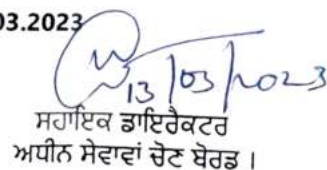 03.2023
13/03/2023
ਸਹਾਇਕ ਡਾਇਰੈਕਟਰ
ਅਧੀਨ ਸੇਵਾਵਾਂ ਚੋਣ ਬੋਰਡ।